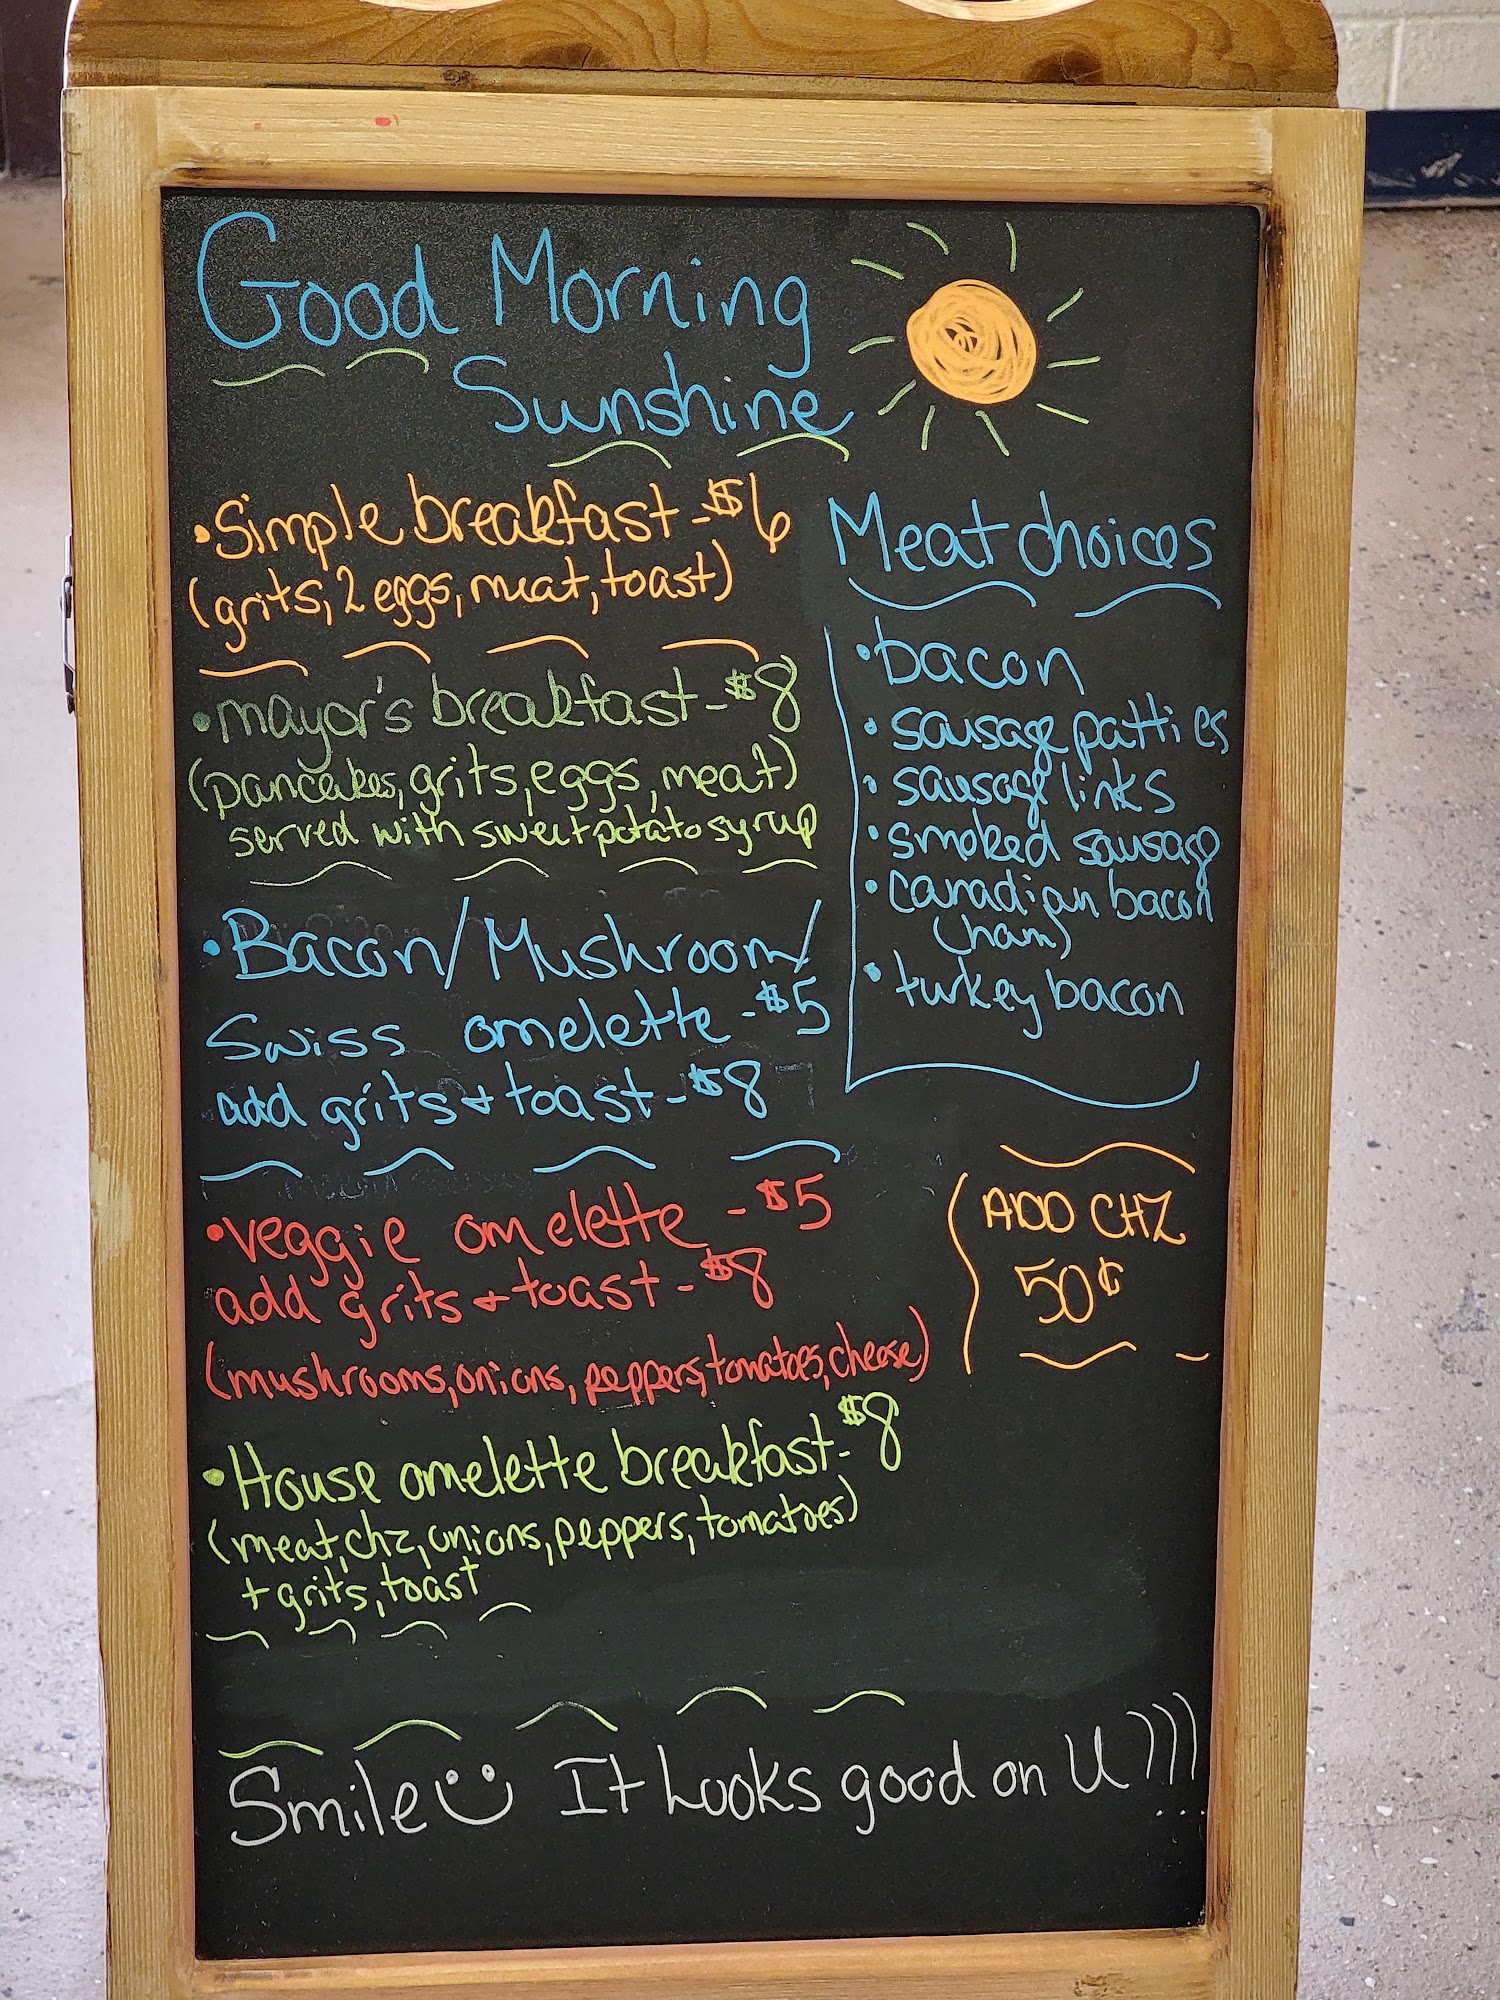 Good Morning
Sunshine
•Simple breakfast - $6
(grits, 2 eggs, meat, toast)
•mayor's breakfast - $8
(pancakes, grits, eggs, meat)
served with sweet potato syrup
•Bacon/Mushroom/
Swiss omelette - $5
add grits + toast - $8
•veggie omelette - $5
add grits + toast - $8
(mushrooms, onions, peppers, tomatoes, cheese)
•House omelette breakfast - $8
(meat, chz, onions, peppers, tomatoes)
+ grits, toast
Meat choices
•bacon
•sausage patties
•sausage links
•smoked sausage
•canadian bacon
(ham)
•turkey bacon
ADD CHZ
50¢
Smile It Looks good on U!!!